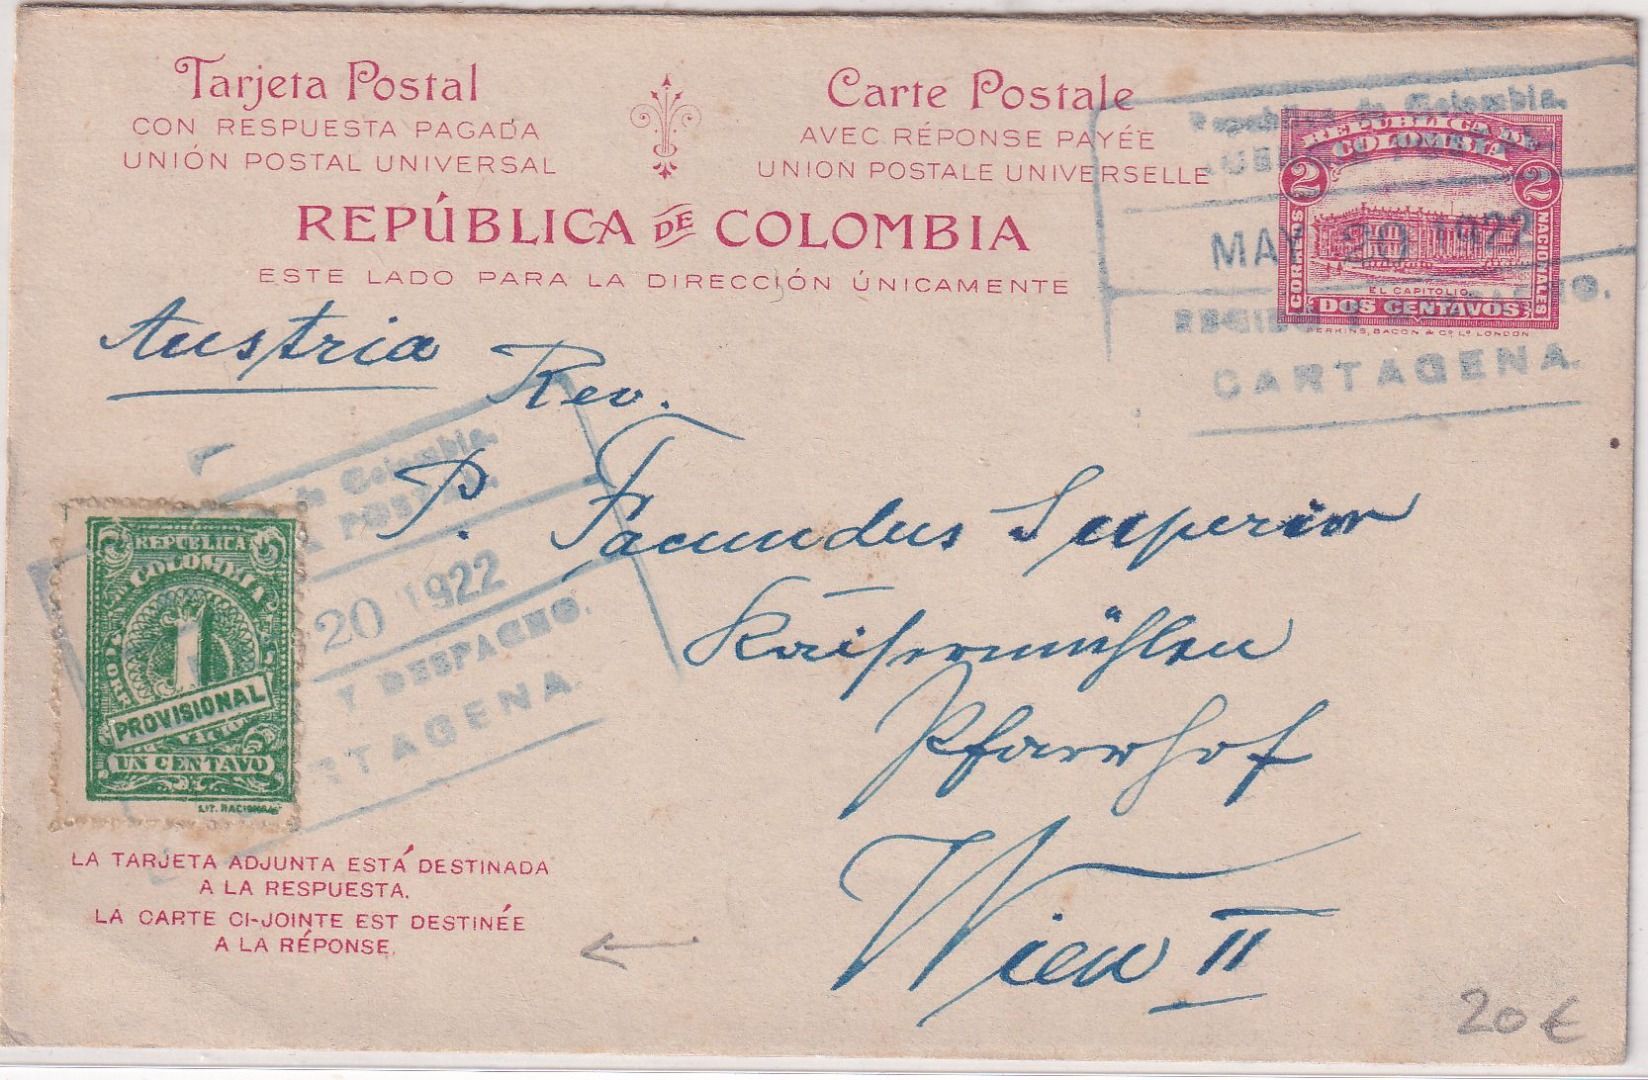 Tarjeta Postal
CON RESPUESTA PAGADA
UNIÓN POSTAL UNIVERSAL
Carte Postale
AVEC RÉPONSE PAYÉE
UNION POSTALE UNIVERSELLE
REPÚBLICA DE COLOMBIA
ESTE LADO PARA LA DIRECCIÓN ÚNICAMENTE
REPUBLICA DE
COLOMBIA
2 2
CORREOS NACIONALES
EL CAPITOLIO
DOS CENTAVOS
PERKINS, BACON & Co Ld LONDON
de Colombia.
MAY 20 1922
CARTAGENA.
Austria
Rev.
P. Facundus Superior
Kaisermühlen
Pfarrhof
Wien II
de Colombia.
POSTAL.
20 1922
Y DESPACHO.
CARTAGENA.
REPUBLICA
COLOMBIA
1
PROVISIONAL
UN CENTAVO
LIT. NACIONAL
LA TARJETA ADJUNTA ESTÁ DESTINADA
A LA RESPUESTA.
LA CARTE CI-JOINTE EST DESTINÉE
A LA RÉPONSE.
20 €